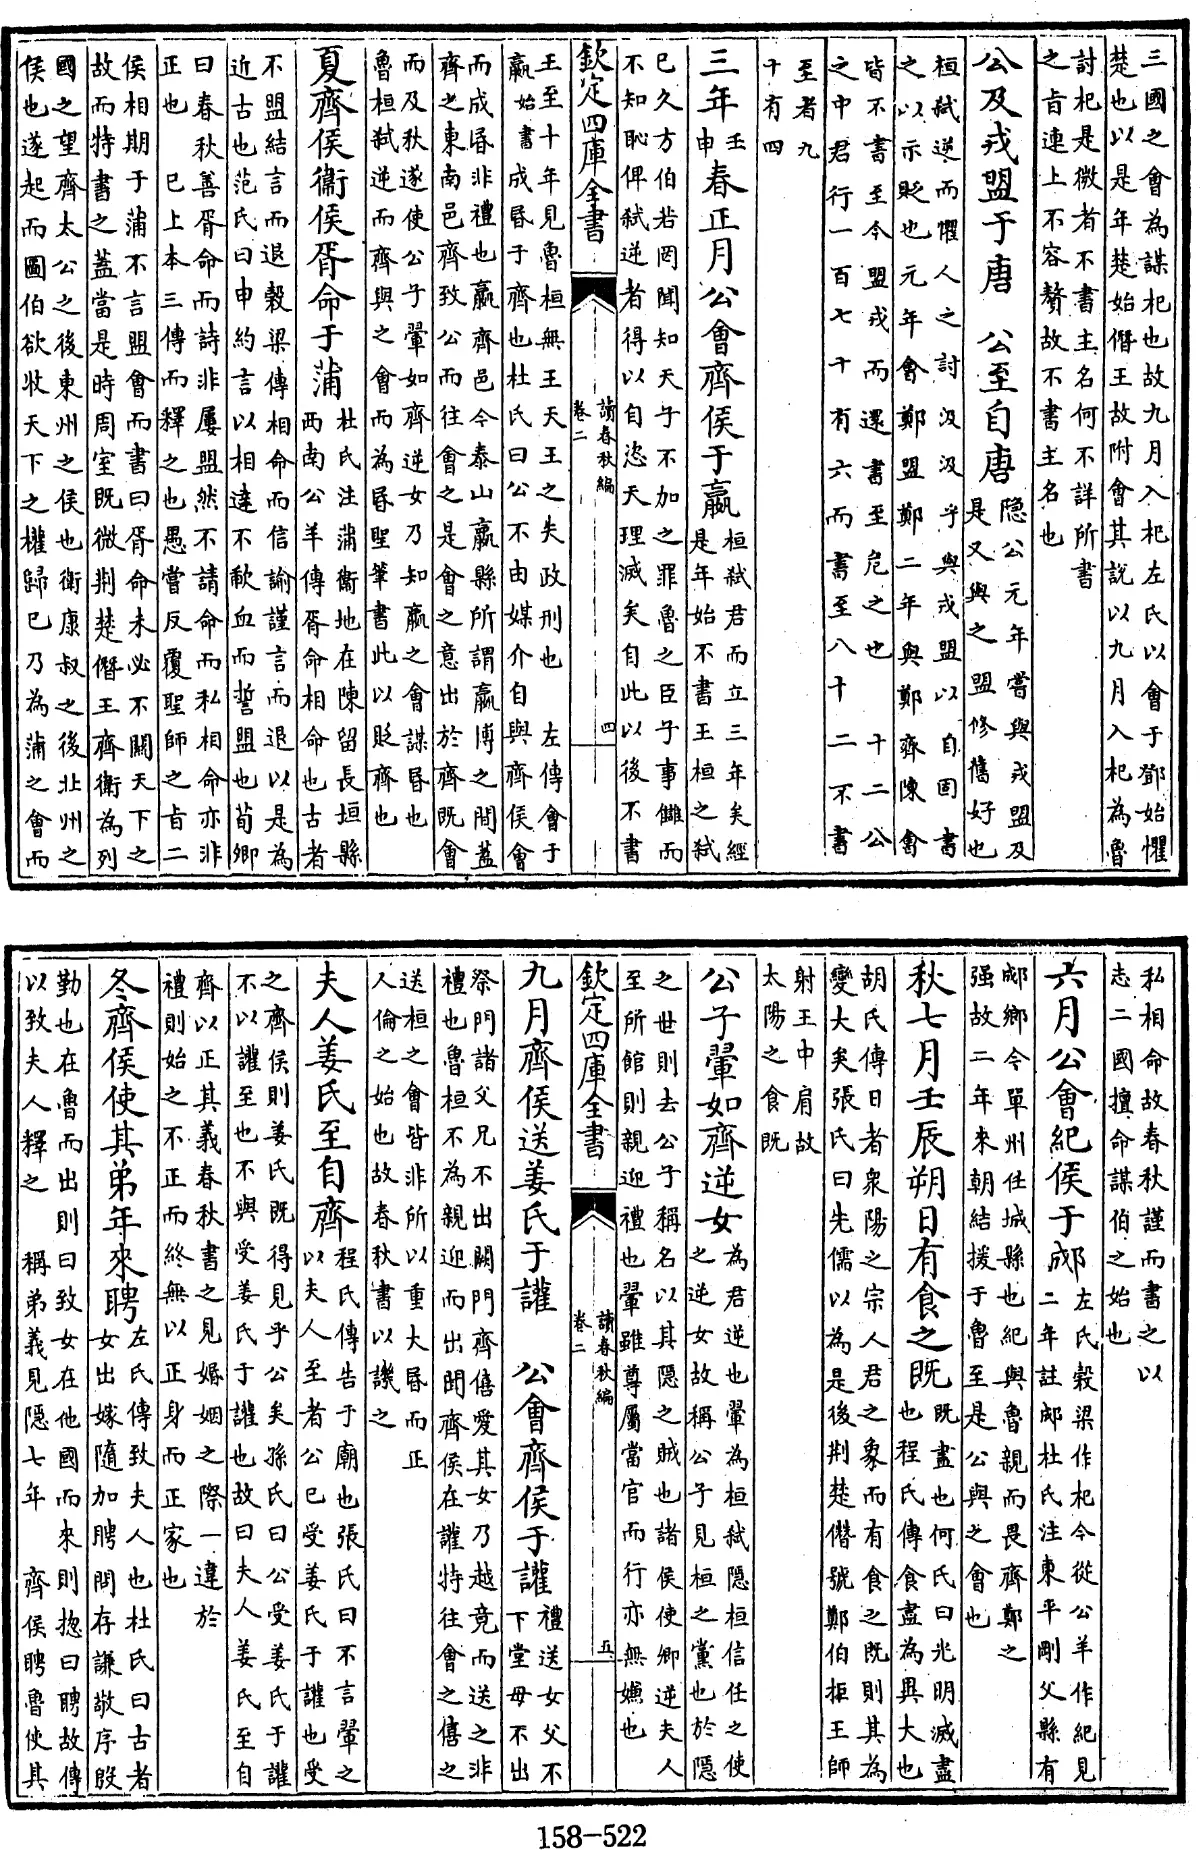 三國之會為謀杞也故九月入杞左氏以會于鄧始懼
楚也以是年楚始僭王故附會其說以九月入杞為魯
討杞是微者不書主名何不詳所書
之旨連上不容贅故不書主名也
公及戎盟于唐 公至自唐
隐公元年嘗與戎盟及
是又與之盟修舊好也
桓弑逆而懼人之討汲汲乎與戎盟以自固書
之以示貶也元年會鄭盟鄭二年與鄭齊陳會
皆不書至今盟戎而還書至危之也 十二公
之中君行一百七十有六而書至八十二不書
至者九
十有四
三年壬申春正月公會齊侯于嬴
桓弑君而立三年矣經
是年始不書王桓之弑
已久方伯若罔聞知天子不加之罪魯之臣子事讎而
不知恥俾弑逆者得以自恣天理滅矣自此以後不書
欽定四庫全書
讀春秋編
卷二
四
王至十年見魯桓無王天王之失政刑也 左傳會于
嬴始書成昏于齊也杜氏曰公不由媒介自與齊侯會
而成昏非禮也嬴齊邑今泰山嬴縣所謂嬴博之間蓋
齊之東南邑齊致公而往會之是會之意出於齊既會
而及秋遂使公子翬如齊逆女乃知嬴之會謀昏也
魯桓弑逆而齊與之會而為昏聖筆書此以貶齊也
夏齊侯衞侯胥命于蒲
杜氏注蒲衞地在陳留長垣縣
西南公羊傳胥命相命也古者
不盟結言而退榖梁傳相命而信諭謹言而退以是為
近古也范氏曰申約言以相達不歃血而誓盟也荀卿
曰春秋善胥命而詩非屢盟然不請命而私相命亦非
正也 已上本三傳而釋之也愚嘗反覆聖師之旨二
侯相期于蒲不言盟會而書曰胥命未必不關天下之
故而特書之蓋當是時周室既微荆楚僭王齊衛為列
國之望齊太公之後東州之侯也衛康叔之後北州之
侯也遂起而圖伯欲收天下之權歸已乃為蒲之會而
私相命故春秋謹而書之以
志二國擅命謀伯之始也
六月公會紀侯于郕
左氏榖梁作杞今從公羊作紀見
二年註郕杜氏注東平剛父縣有
郕鄉今單州任城縣也紀與魯親而畏齊鄭之
强故二年來朝結援于魯至是公與之會也
秋七月壬辰朔日有食之既
既盡也何氏曰光明滅盡
也程氏傳食盡為異大也
胡氏傳日者衆陽之宗人君之象而有食之既則其為
變大矣張氏曰先儒以為是後荆楚僭號鄭伯拒王師
射王中肩故
太陽之食既
公子翬如齊逆女
為君逆也翬為桓弑隱桓信任之使
之逆女故稱公子見桓之黨也於隱
之世則去公子稱名以其隱之賊也諸侯使卿逆夫人
至所館則親迎禮也翬雖尊屬當官而行亦無嫌也
欽定四庫全書
讀春秋編
卷二
五
九月齊侯送姜氏于讙 公會齊侯于讙
禮送女父不
下堂母不出
祭門諸父兄不出闕門齊僖愛其女乃越竟而送之非
禮也魯桓不為親迎而出聞齊侯在讙特往會之僖之
送桓之會皆非所以重大昏而正
人倫之始也故春秋書以譏之
夫人姜氏至自齊
程氏傳告于廟也張氏曰不言翬之
以夫人至者公已受姜氏于讙也受
之齊侯則姜氏既得見乎公矣孫氏曰公受姜氏于讙
不以讙至也不與受姜氏于讙也故曰夫人姜氏至自
齊以正其義春秋書之見婚姻之際一違於
禮則始之不正而終無以正身而正家也
冬齊侯使其弟年來聘
左氏傳致夫人也杜氏曰古者
女出嫁隨加聘問存謙敬序殷
勤也在魯而出則曰致女在他國而來則揔曰聘故傳
以致夫人釋之 稱弟義見隱七年 齊侯聘魯使其
158-522